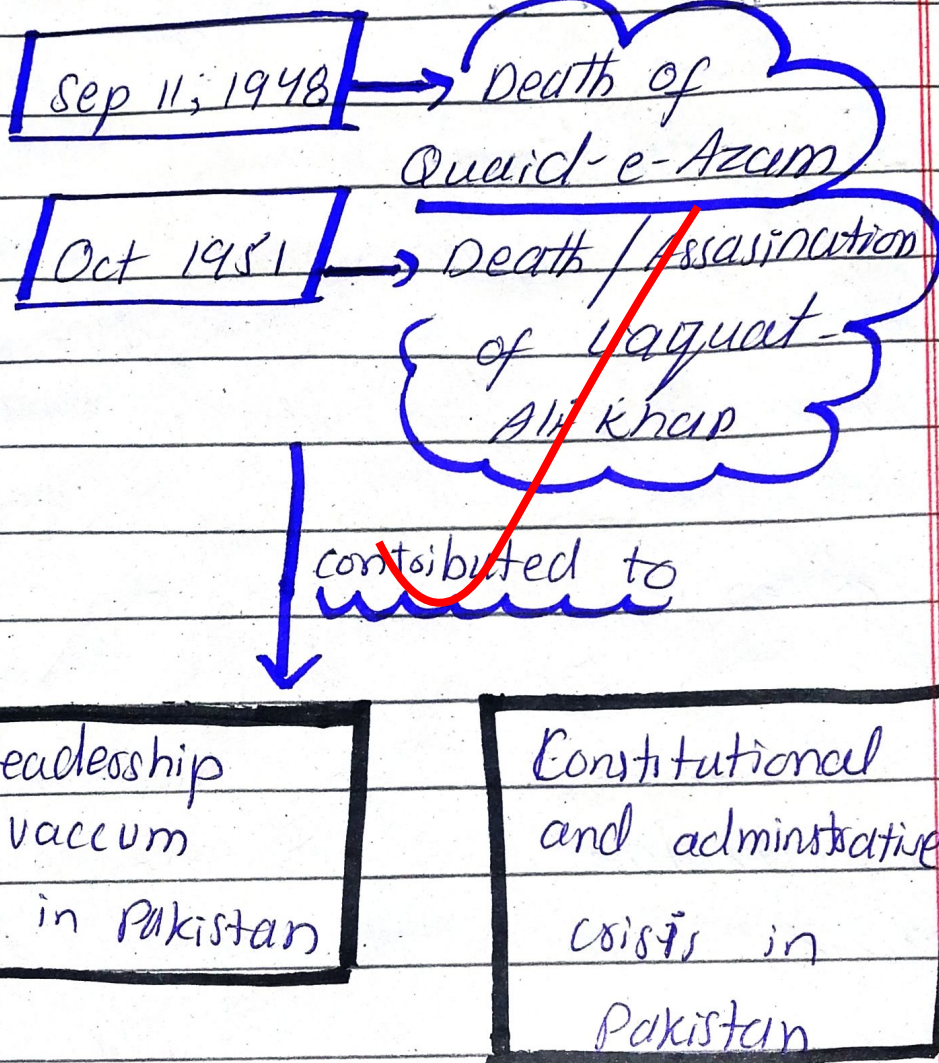 Sep 11, 1948 → Death of
Quaid-e-Azam
Oct 1951 → Death / Assasination
of Liaquat-
Ali Khan
contributed to
eadership
vaccum
in Pakistan
Constitutional
and adminstrative
crisis in
Pakistan